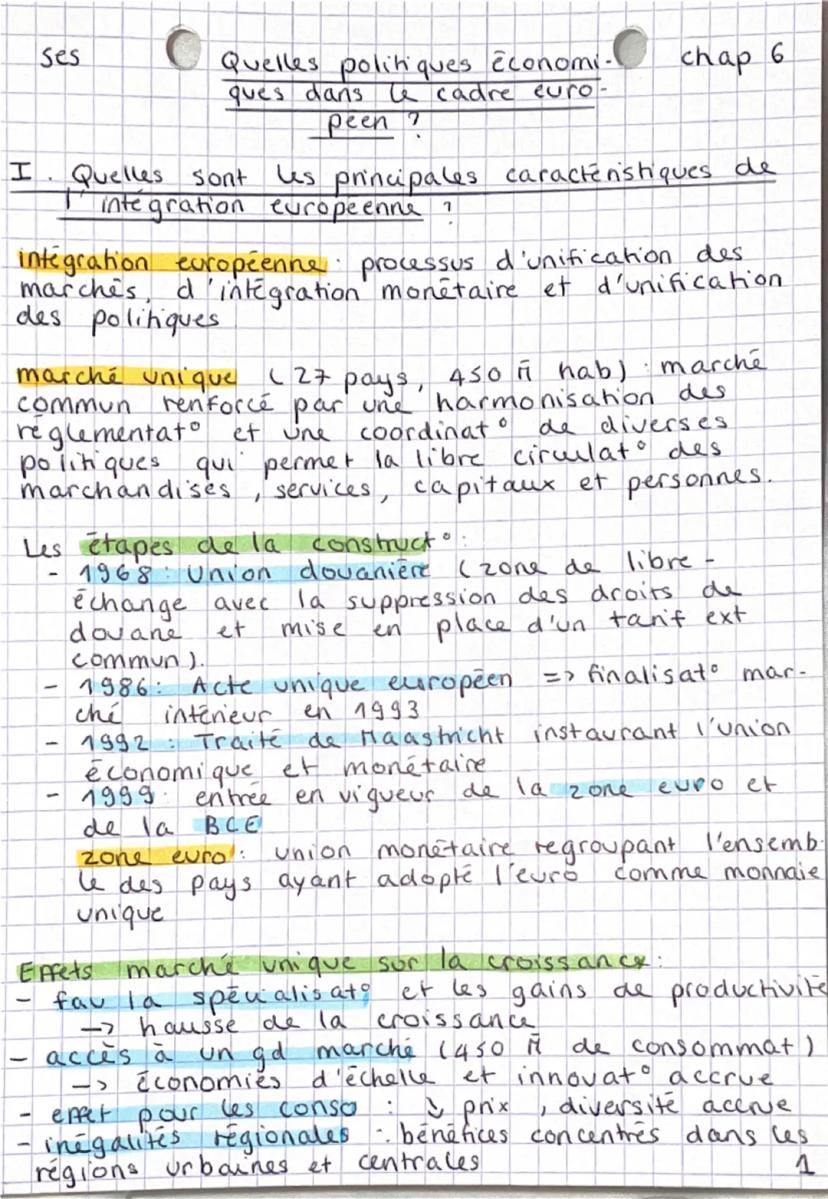 ses
Quelles politiques économi-
chap 6
ques dans le cadre euro-
péen ?
I. Quelles sont les principales caractéristiques de
l'intégration européenne ?
intégration européenne : processus d'unification des
marchés, d'intégration monétaire et d'unification
des politiques
marché unique (27 pays, 450 M̄ hab) : marché
commun renforcé par une harmonisation des
réglementat° et une coordinat° de diverses
politiques qui permet la libre circulat° des
marchandises, services, capitaux et personnes.
Les étapes de la construct° :
- 1968 : Union douanière (zone de libre-
échange avec la suppression des droits de
douane et mise en place d'un tarif ext
commun).
- 1986 : Acte unique européen => finalisat° mar-
ché intérieur en 1993
- 1992 : Traité de Maastricht instaurant l'union
économique et monétaire
- 1999 : entrée en vigueur de la zone euro et
de la BCE
zone euro : union monétaire regroupant l'ensemb-
le des pays ayant adopté l'euro comme monnaie
unique
Effets marché unique sur la croissance :
- fav la spécialisat° et les gains de productivité
-> hausse de la croissance
- accès à un gd marché (450 M̄ de consommat)
-> économies d'échelle et innovat° accrue
- effet pour les conso : ↓ prix, diversité accrue
- inégalités régionales : bénéfices concentrés dans les
régions urbaines et centrales
1